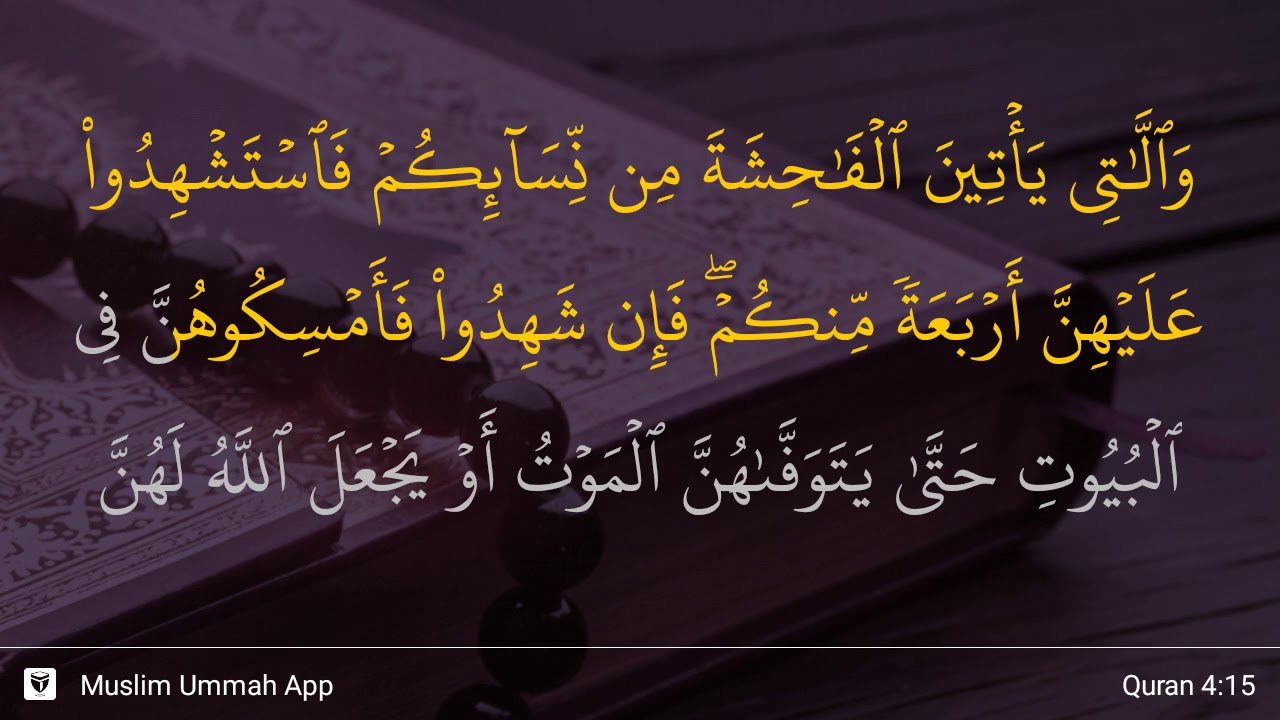 وَٱلَّـٰتِى يَأْتِينَ ٱلْفَـٰحِشَةَ مِن نِّسَآئِكُمْ فَٱسْتَشْهِدُوا۟
عَلَيْهِنَّ أَرْبَعَةً مِّنكُمْ ۖ فَإِن شَهِدُوا۟ فَأَمْسِكُوهُنَّ فِى
ٱلْبُيُوتِ حَتَّىٰ يَتَوَفَّىٰهُنَّ ٱلْمَوْتُ أَوْ يَجْعَلَ ٱللَّهُ لَهُنَّ
Muslim Ummah App
Quran 4:15